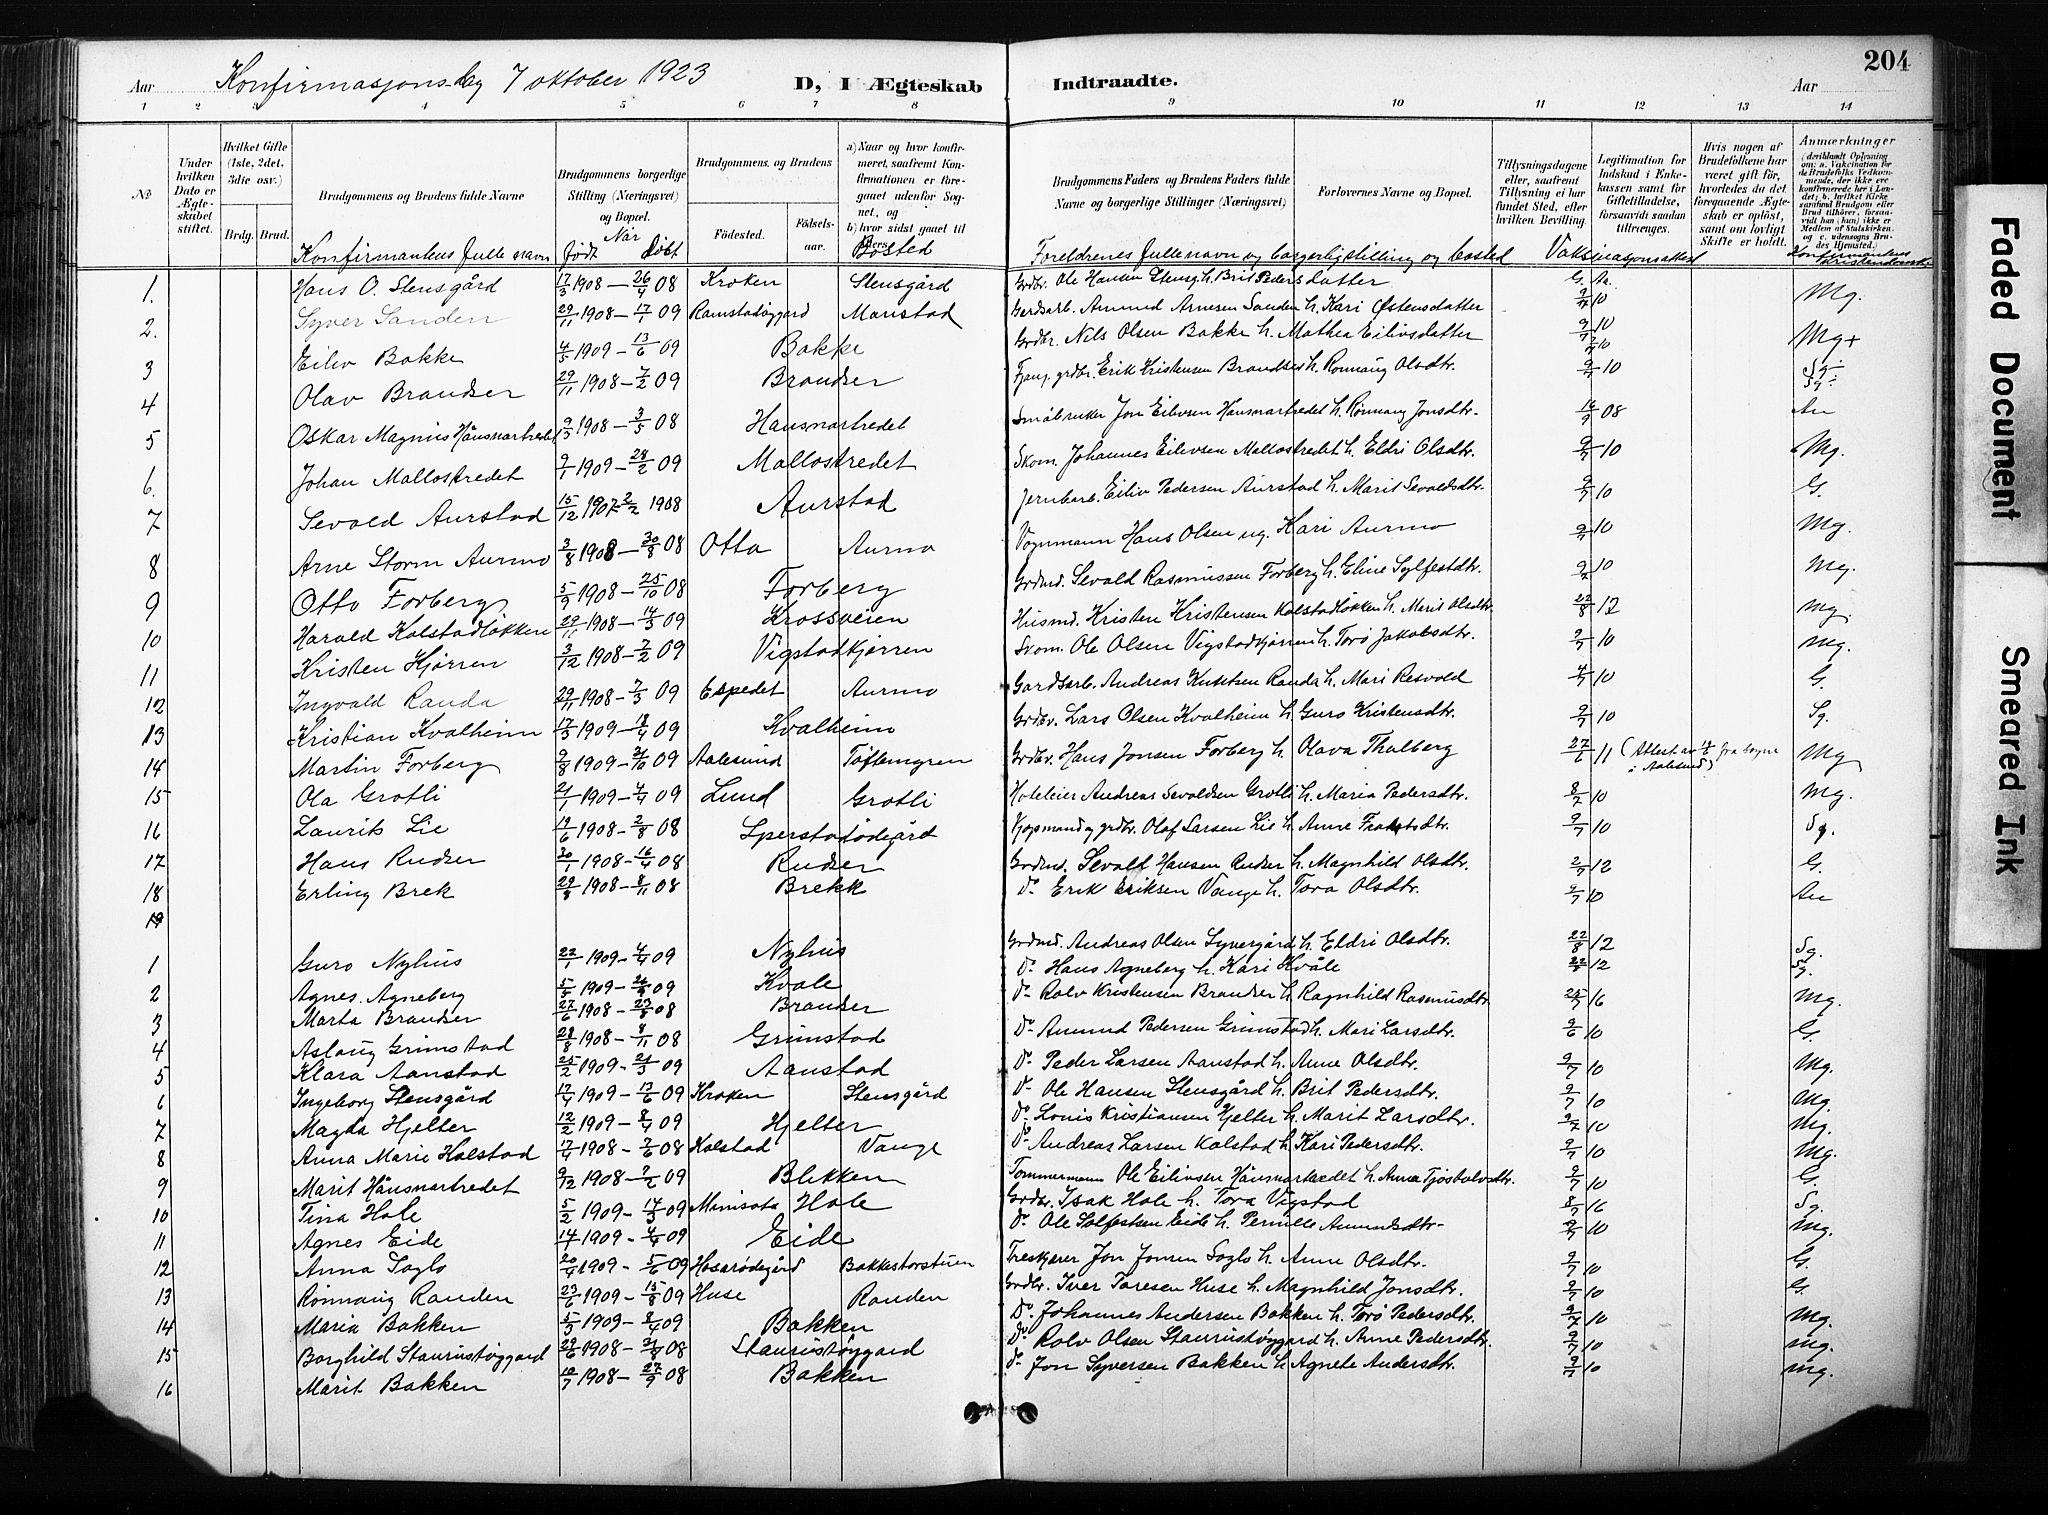 204
Aar Konfirmasjonsdag 7 oktober 1923 D, I Ægteskab Indtraadte. Aar
1 2 3 4 5 6 7 8 9 10 11 12 13 14
No
Under hvilken Dato er Ægteskabet stiftet.
Hvilket Gifte (1ste, 2det, 3die osv.)
Brdg. Brud.
Brudgommens og Brudens fulde Navne
Konfirmantens fulle navn
Brudgommens borgerlige Stilling (Næringsvei) og Bopæl.
Når født døbt
Brudgommens og Brudens
Fødested. Fødselsaar.
a) Naar og hvor konfirmeret, saafremt Konfirmationen er foregaaet udenfor Sognet, og
b) hvor sidst gaaet til Alters.
Bosted
Brudgommens Faders og Brudens Faders fulde Navne og borgerlige Stillinger (Næringsvei)
Forlovernes Navne og Bopæl.
Foreldrenes fulle navn og borgerlig stilling og bosted
Tillysningsdagene eller, saafremt Tillysning ei har fundet Sted, efter hvilken Bevilling.
Legitimation for Indskud i Enkekassen samt for Giftetilladelse, forsaavidt saadan tiltrænges.
Vaksinasjonsattest
Hvis nogen af Brudefolkene har været gift før, hvorledes da det foregaaende Ægteskab er opløst, samt om lovligt Skifte er holdt.
Anmærkninger
(deriblandt Oplysning om: a. Vakcination for de Brudefolks Vedkommende, der ikke ere konfirmerede her i Landet; b. hvilket Kirkesamfund Brudgom eller Brud tilhører, forsaavidt han (hun) ikke er Medlem af Statskirken, og c. udensogns Brudes Hjemsted.)
1. Hans O. Stensgård 17/3 1908 – 26/4 08 Kroken Stensgård Grdbr. Ole Hansen Stensg. h. Brit Pedersdatter Mg.
2. Syver Sanden 29/11 1908 – 17/1 09 Ramstadøygard Manstad Gardsarb. Amund Arnesen Sanden h. Kari Østensdatter 9/7 10 Mg+
3 Eiliv Bakke 4/5 1909 – 13/6 09 Bakke Grdbr. Nils Olsen Bakke h. Mathea Eilivsdatter 9/7 10
4 Olav Brandser 29/11 1908 – 7/2 09 Brandser Erik Kristensen Brandser h. Rønnaug Olsdtr. 9/7 10
5 Oskar Magnus Hånsnartredet 9/3 1908 – 3/5 08 Hansnartredet Småbruker Jon Eilevsen Hånsnartredet h. Rønnaug Jonsdtr. 16/9 08
6. Johan Mallostredet 9/1 1909 – 28/2 09 Mallostredet Skom. Johannes Eilevsen Mallostredet h. Eldri Olsdtr. 9/7 10 Mg.
7 Sevald Aurstad 15/12 1907 – 2/2 1908 Aurstad Jernbarb. Eiliv Pedersen Aurstad h. Marit Sevaldsdtr. 9/7 10 G.
8 Arne Storm Aurmo 3/8 1908 – 30/8 08 Otta Aurmo Vognmann Hans Olsen ug. Kari Aurmo 9/7 10 Mg.
9 Otto Forberg 5/9 1908 – 25/10 08 Forberg Grdmd. Sevald Rasmussen Forberg h. Eline Sylfestdtr. 9/7 10 Mg.
10 Harald Kolstadløkken 29/11 1908 – 14/3 09 Krossveien Husmd. Kristen Kristensen Kolstadløkken h. Marit Olsdtr. 22/8 12 Mg.
11 Kristen Kjørren 3/12 1908 – 7/2 09 Vigstadkjørren Skom. Ole Olsen Vigstadkjørren h. Torø Jakobsdtr. 9/7 10 Mg.
12 Ingvald Randa 29/11 1908 – 7/3 09 Espedet Aurmo Gardsarb. Andreas Knutsen Randa h. Mari Resvold 4/7 10 G.
13 Kristian Kvalheim 17/3 1909 – 18/4 09 Kvalheim Grdbr. Lars Olsen Kvalheim h. Guro Kristensdtr. 9/7 10 Sg.
14 Martin Forberg 9/8 1909 – 3/10 09 Aalesund Tøftemyren Grdbr. Hans Jonsen Forberg h. Olava Thalberg 27/6 11 (Attest av fra sogne i Aalesund) Mg
15 Ola Grotli 21/1 1909 – 4/4 09 Lund Grotli Hoteleier Andreas Sevaldsen Grotli h. Maria Pedersdtr. 8/7 10 Mg.
16 Laurits Lie 19/6 1908 – 2/8 08 Sperstadødegård Kjøpmand og grdbr. Olaf Larsen Lie h. Anne 9/7 10 Sg.
17 Hans Rudser 30/1 1908 – 16/4 08 Rudser Grdmd. Sevald Hansen Rudser h. Magnhild Olsdtr. 2/7 12 G.
18 Erling Brek 29/8 1908 – 8/11 08 Brekk Do Erik Eriksen Vange h. Tora Olsdtr. 9/7 10
19
1 Guro Nyhus 22/1 1909 – 4/4 09 Nyhus Grdmd. Andreas Olsen Syvergård h. Eldri Olsdtr. 22/8 12 Sg.
2 Agnes Agneberg 5/5 1909 – 09 Kvale Do Hans Agneberg h. Kari Kvåle 12 Sg.
3 Marta Brandser 27/6 1908 – 23/8 08 Brandser Do Rolv Kristensen Brandser h. Ragnhild Rasmusdtr. 25/7 16 Mg.
4 Aslaug Grimstad 28/8 1908 – 8/11 08 Grimstad Do Amund Pedersen Grimstad h. Mari Larsdtr. 9/6 10 G.
5 Klara Aanstad 25/2 1909 – 21/3 09 Aanstad Do Peder Larsen Aanstad h. Anne Olsdtr. 10 Mg.
6 Ingeborg Stensgård 17/4 1909 – 13/6 09 Kroken Stensgård Do Ole Hansen Stensgård h. Brit Pedersdtr. 9/7 10 Mg.
7 Magda Hjelter 12/2 1909 – 8/4 09 Hjelter Do Louis Kristiansen Hjelter h. Marit Larsdtr. 9/7 10 Mg.
8 Anna Marie Kolstad 17/4 1908 – 7/6 08 Kolstad Vange Do Andreas Larsen Kolstad h. Kari Pedersdtr. 9/7 10 Mg.
9 Marit Hånsnartredet 9/12 1908 – 7/2 09 Blekken Tømmermann Ole Eilivsen Hånsnartredet h. Anne Tjøstolvsdtr. 9/7 10 G.
10 Tina Hole 5/2 1909 – 14/3 09 Minisota Hole Grdbr. Isak Hole h. Tora Vigstad 8/7 16 Sg.
11 Agnes Eide 14/1 1909 – 4/4 09 Eide Do Ole Solfestsen Eide h. Pernille Amundsdtr. 9/7 10 Mg.
12 Anna Soglo 20/4 1909 – 5/6 09 Hosarødegård Bakkestorstuen Treskjærer Jon Jonsen Soglo h. Anne Olsdtr. 9/7 10 G.
13 Rønnaug Randen 23/6 1909 – 15/8 09 Huse Randen Grdbr. Iver Toresen Huse h. Magnhild Jonsdtr. 9/7 10 G.
14 Maria Bakken 5/3 1909 – 09 Bakken Do Johannes Andersen Bakken h. Torø Pedersdtr. 9/7 10 Mg.
15 Borghild Staurustøygard 29/6 1908 – 08 Staurustøygard Do Rolv Olsen Staurustøygard h. Anne Pedersdtr. 9/7 10 Mg.
16 Marit Bakken 10/7 1908 – 27/9 08 Bakken Do Jon Syversen Bakken h. Agnete Andersdtr. 9/7 10 Mg.
Faded Document
Smeared Ink